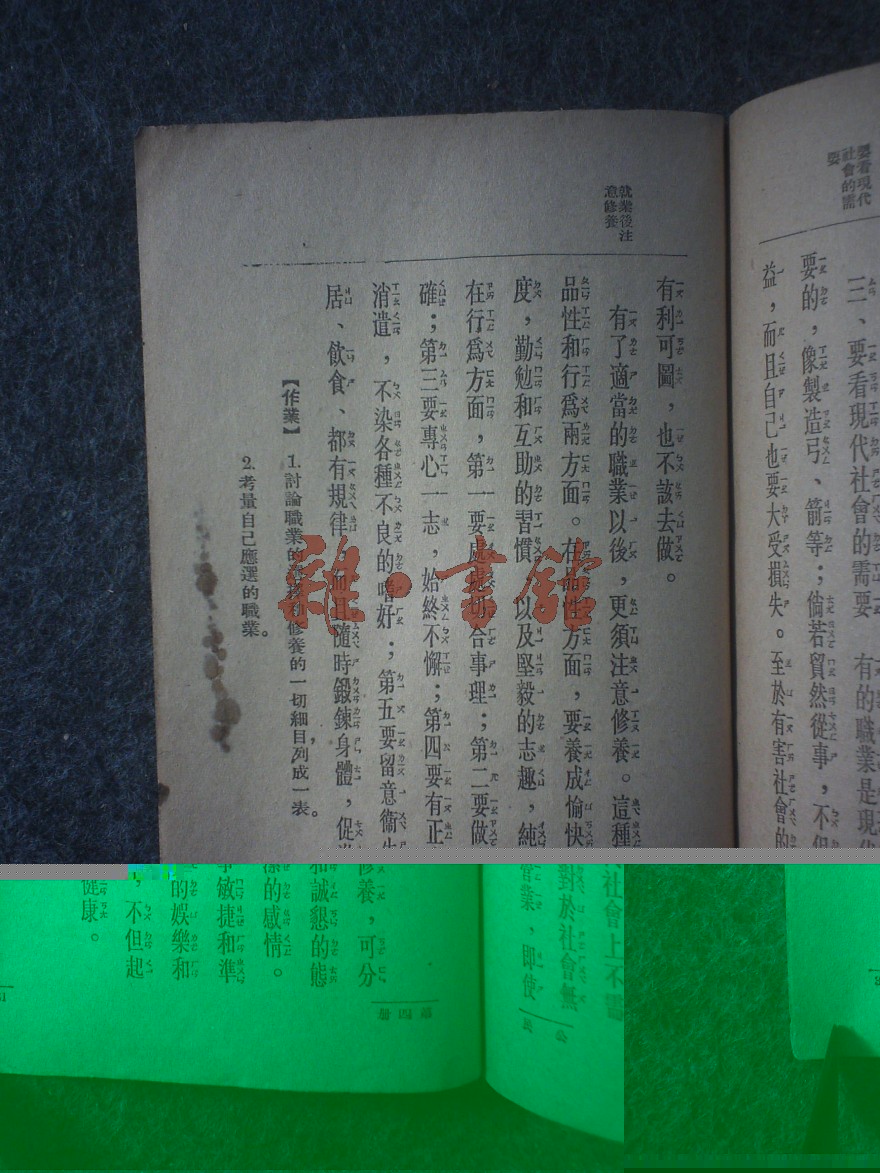 要看現代
社會的需
要
三、要看現代社會的需要
有的職業是現代
社會上不需
要的，像製造弓、箭等；倘若貿然從事，不但
對於社會無
益，而且自己也要大受損失。至於有害社會的
職業，即使
公
民
就業後注
意修養
有利可圖，也不該去做。
有了適當的職業以後，更須注意修養。這種
修養，可分
品性和行爲兩方面。在品性方面，要養成愉快
和誠懇的態
度，勤勉和互助的習慣，以及堅毅的志趣，純
潔的感情。
在行爲方面，第一要處處切合事理；第二要做
事敏捷和準
確；第三要專心一志，始終不懈；第四要有正
的娛樂和
消遣，不染各種不良的嗜好；第五要留意衞生
，不但起
居、飲食、都有規律，而且隨時鍛鍊身體，促
健康。
【作業】
1.討論職業的選擇和修養的一切細目，列成一表。
2.考量自己應選的職業。
第四册
雜·書館